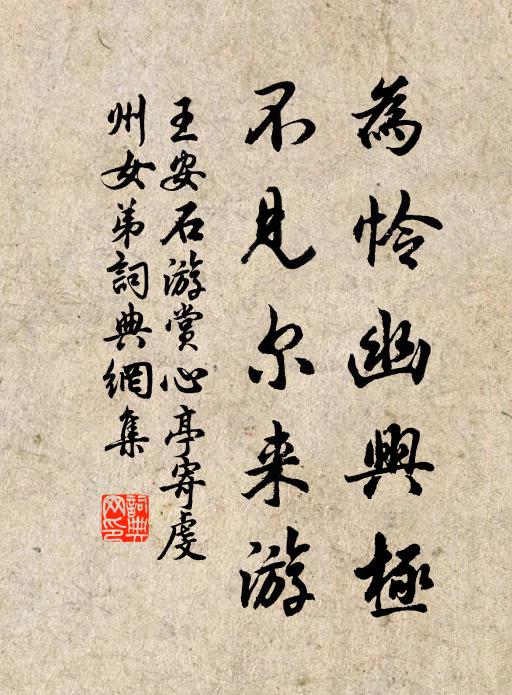 為怜幽興極
不見尔来游
王安石游賞心亭寄虔
州女弟詞典網集
詞典
网印